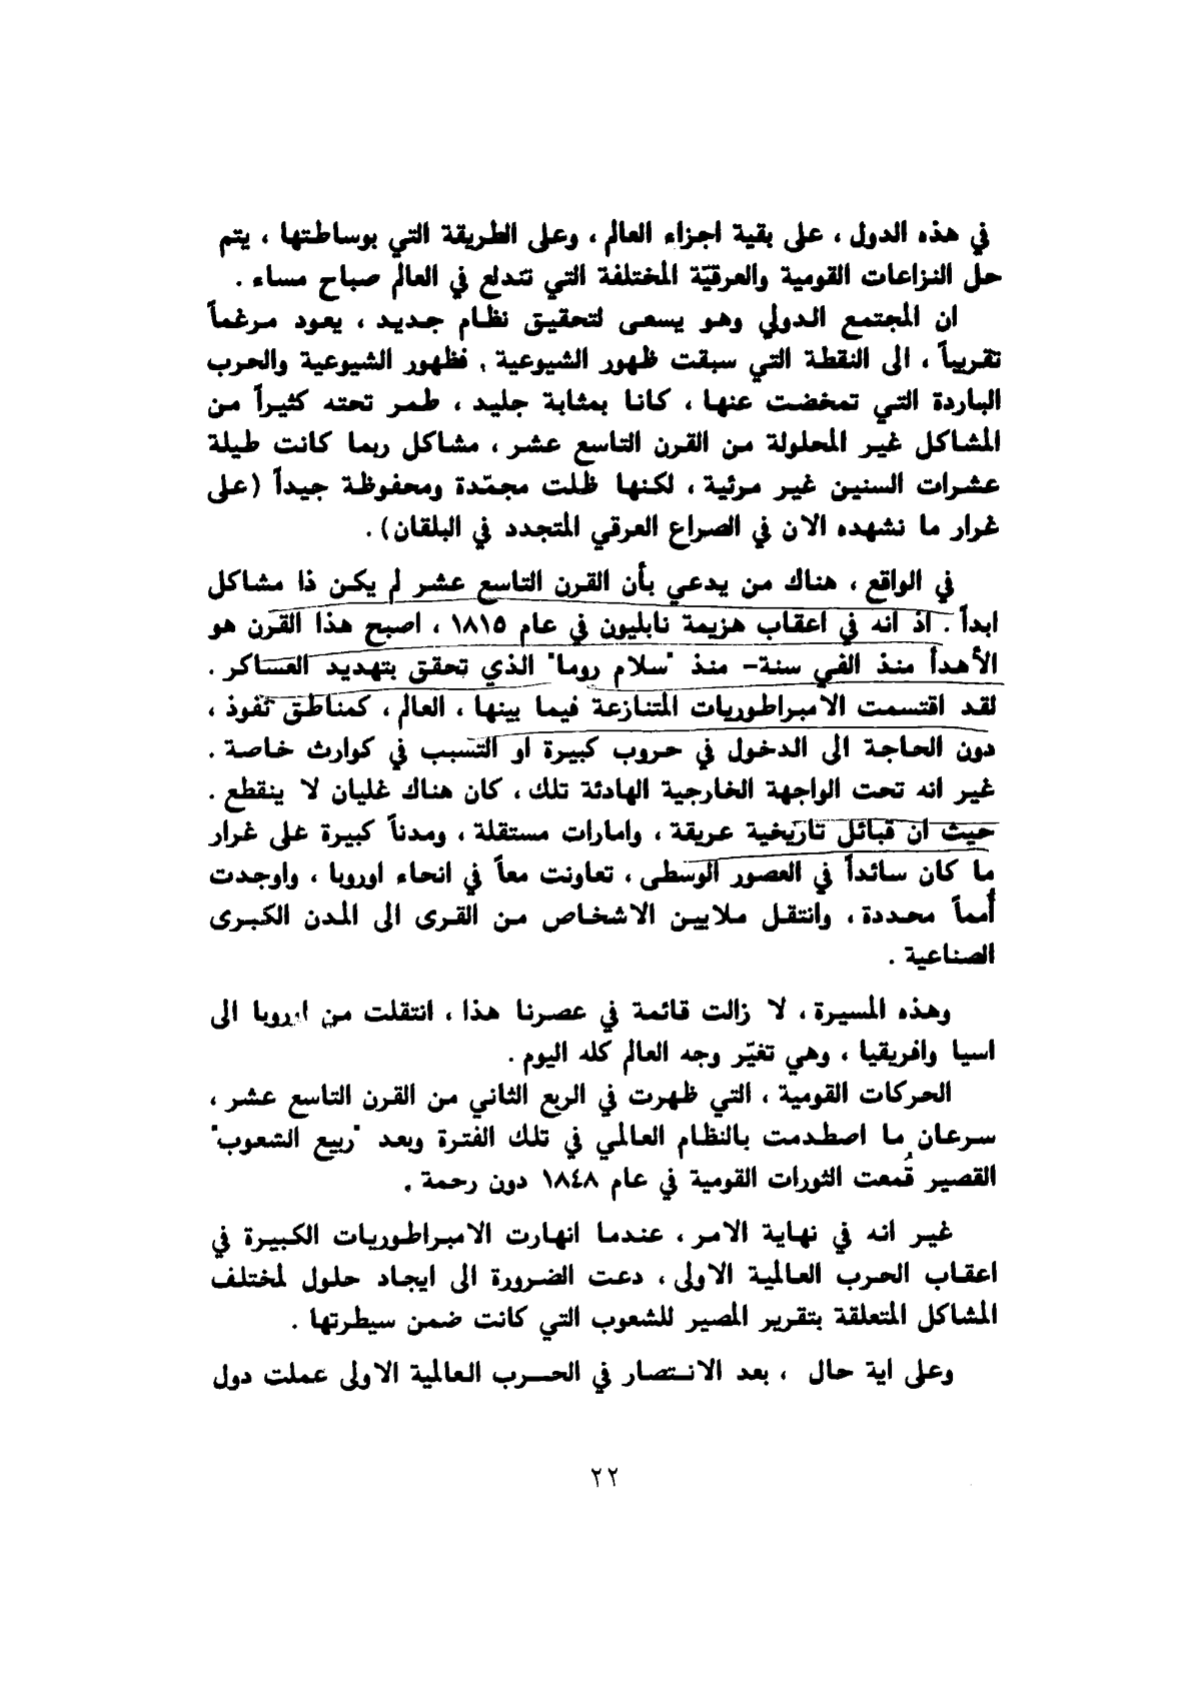 في هذه الدول ، على بقية اجزاء العالم ، وعلى الطريقة التي بوساطتها ، يتم
حل النزاعات القومية والعرقيّة المختلفة التي تندلع في العالم صباح مساء .
ان المجتمع الدولي وهو يسعى لتحقيق نظام جديد ، يعود مرغماً
تقريباً ، الى النقطة التي سبقت ظهور الشيوعية . فظهور الشيوعية والحرب
الباردة التي تمخضت عنها ، كانا بمثابة جليد ، طمر تحته كثيراً من
المشاكل غير المحلولة من القرن التاسع عشر ، مشاكل ربما كانت طيلة
عشرات السنين غير مرئية ، لكنها ظلت مجمّدة ومحفوظة جيداً (على
غرار ما نشهده الان في الصراع العرقي المتجدد في البلقان) .
في الواقع ، هناك من يدعي بأن القرن التاسع عشر لم يكن ذا مشاكل
ابداً . اذ انه في اعقاب هزيمة نابليون في عام ١٨١٥ ، اصبح هذا القرن هو
الأهدأ منذ الفي سنة- منذ "سلام روما" الذي تحقق بتهديد العساكر .
لقد اقتسمت الامبراطوريات المتنازعة فيما بينها ، العالم ، كمناطق نفوذ ،
دون الحاجة الى الدخول في حروب كبيرة او التسبب في كوارث خاصة .
غير انه تحت الواجهة الخارجية الهادئة تلك ، كان هناك غليان لا ينقطع .
حيث ان قبائل تاريخية عريقة ، وامارات مستقلة ، ومدناً كبيرة على غرار
ما كان سائداً في العصور الوسطى ، تعاونت معاً في انحاء اوروبا ، واوجدت
أمماً محددة ، وانتقل ملايين الاشخاص من القرى الى المدن الكبرى
الصناعية .
وهذه المسيرة ، لا زالت قائمة في عصرنا هذا ، انتقلت من اوروبا الى
اسيا وافريقيا ، وهي تغيّر وجه العالم كله اليوم .
الحركات القومية ، التي ظهرت في الربع الثاني من القرن التاسع عشر ،
سرعان ما اصطدمت بالنظام العالمي في تلك الفترة وبعد "ربيع الشعوب"
القصير قُمعت الثورات القومية في عام ١٨٤٨ دون رحمة .
غير انه في نهاية الامر ، عندما انهارت الامبراطوريات الكبيرة في
اعقاب الحرب العالمية الاولى ، دعت الضرورة الى ايجاد حلول لمختلف
المشاكل المتعلقة بتقرير المصير للشعوب التي كانت ضمن سيطرتها .
وعلى اية حال ، بعد الانتصار في الحرب العالمية الاولى عملت دول
٢٢